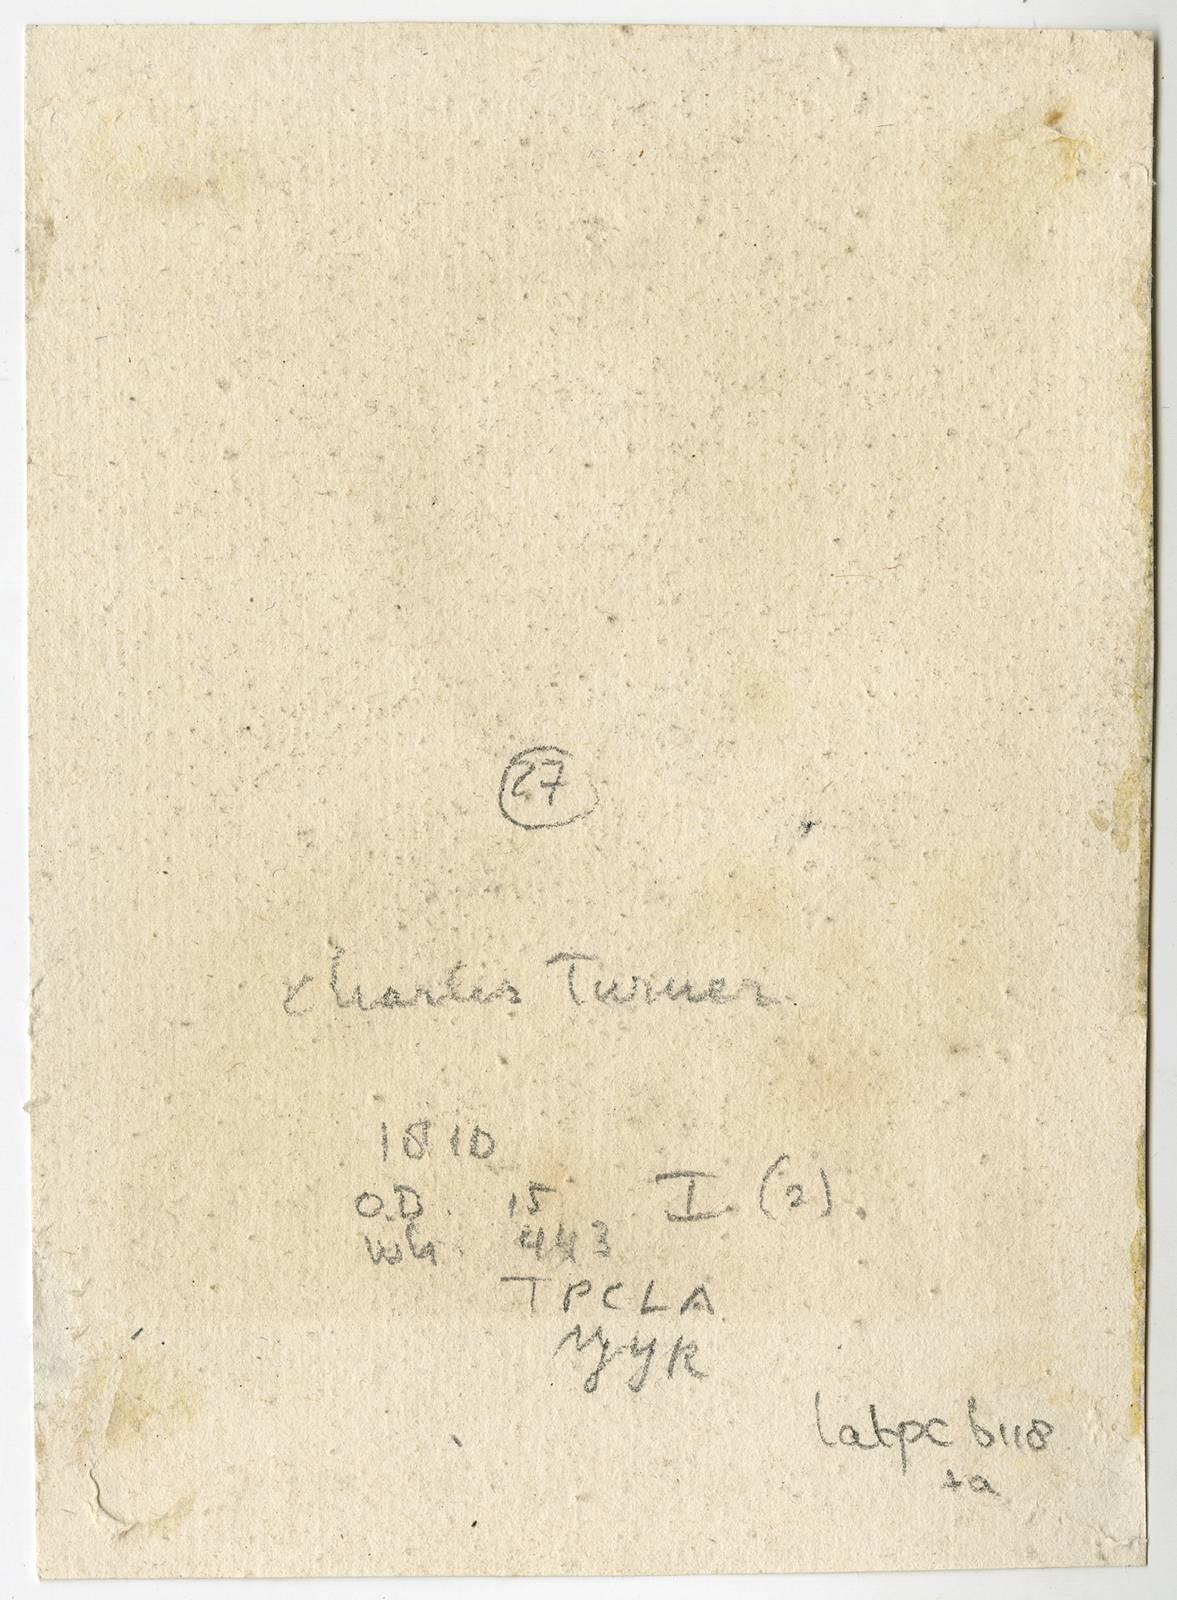 27
Charles Turner
1810
O.D. 15 I. (2).
Wh. 443
TPCLA
labpc b118
ta